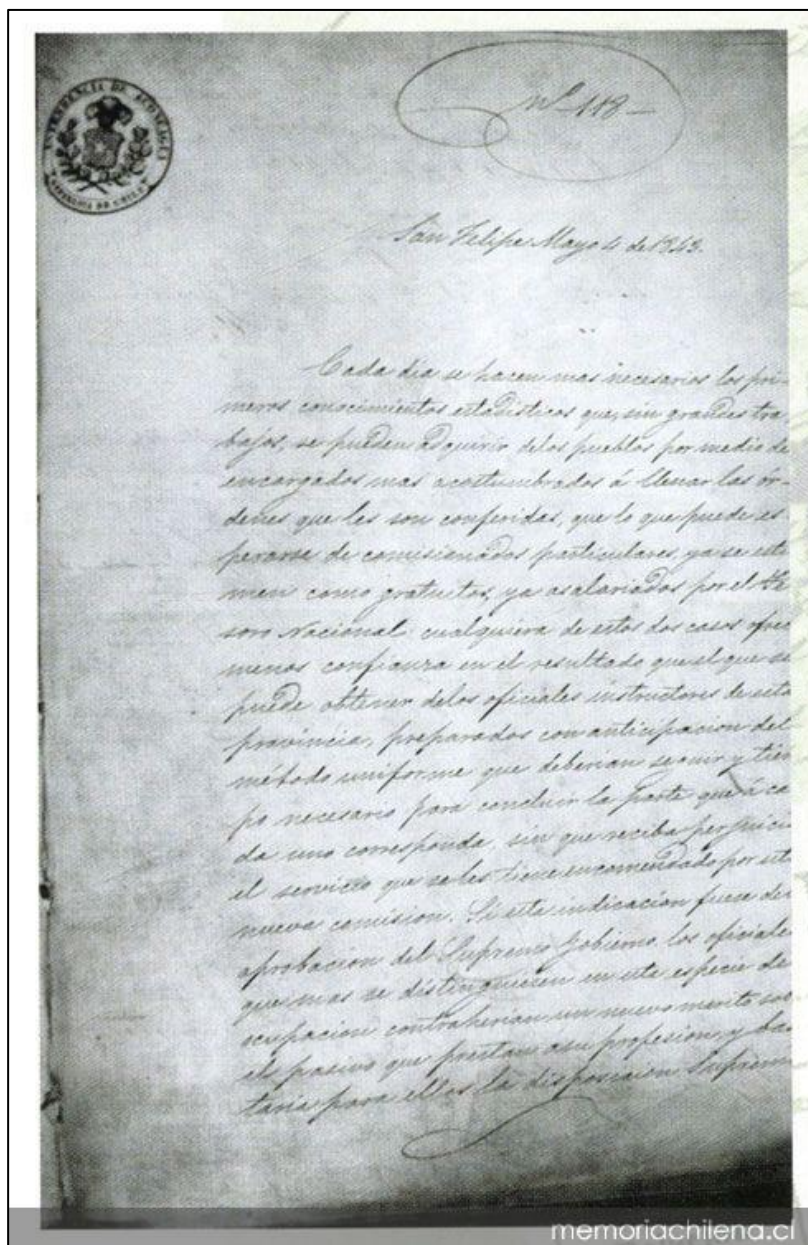 INTENDENCIA DE ACONCAGUA
REPUBLICA DE CHILE
Nº 118 –
San Felipe Mayo 4 de 1843.
Cada dia se hacen mas necesarios los pri-
meros conocimientos estadisticos que, sin grandes tra
bajos, se pueden adquirir delos pueblos por medio de
encargados mas acostumbrados á llenar las ór-
denes que les son conferidas, que lo que puede es
perarse de comisionados particulares, ya se esti
men como gratuitos, ya asalariados por el Te
soro Nacional: cualquiera de estos dos casos ofrece
menos confianza en el resultado que el que se
puede obtener delos oficiales instructores de esta
provincia, preparados con anticipacion del
método uniforme que deberian seguir y tiem
po necesario para concluir la parte que á ca
da uno corresponda, sin que reciba perjuicio
el servicio que se les tiene encomendado por esta
nueva comision. Si esta indicacion fuera de
aprobacion del Supremo Gobierno, los oficiales
que mas se distinguiesen en esta especie de
ocupacion contraherian un nuevo merito sob
el pasivo que prestan asu profesion, y bas
taria para ellos la disposicion Suprema
memoriachilena.cl